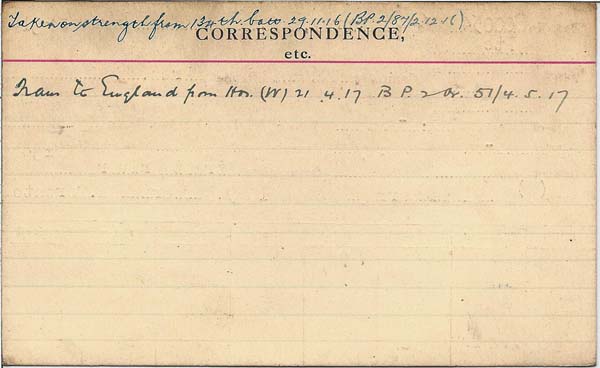 Taken on strength from 134th batt. 29.11.16 (B.P. 2/87/2.12.16)
CORRESPONDENCE,
etc.
Trans to England from Hos. (W) 21 4.17 B P. 2 Or. 51/4.5.17